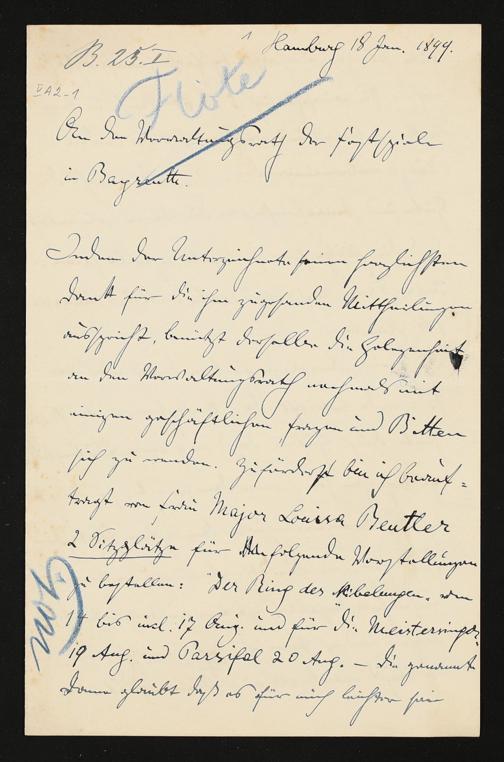 B. 25. I
Hamburg 18 Jan. 1899.
V A 2-1
Flöte
An den Verwaltungsrath der Festspiele
in Bayreuth.
Indem der Unterzeichnete seinen herzlichsten
Dank für die ihm zugesandten Mittheilungen
ausspricht, benützt derselbe die Gelegenheit
an den Verwaltungsrath nochmals mit
einigen geschäftlichen Fragen und Bitten
sich zu wenden. Zuförderst bin ich beauf-
tragt von Frau Major Louisa Beutler
2 Sitzplätze für folgende Vorstellungen
zu bestellen: "Der Ring des Nibelungen" vom
14 bis incl. 17 Aug. und für "die Meistersinger"
19 Aug. und Parsifal 20 Aug. — Die genannte
Dame glaubt daß es für mich leichter sei